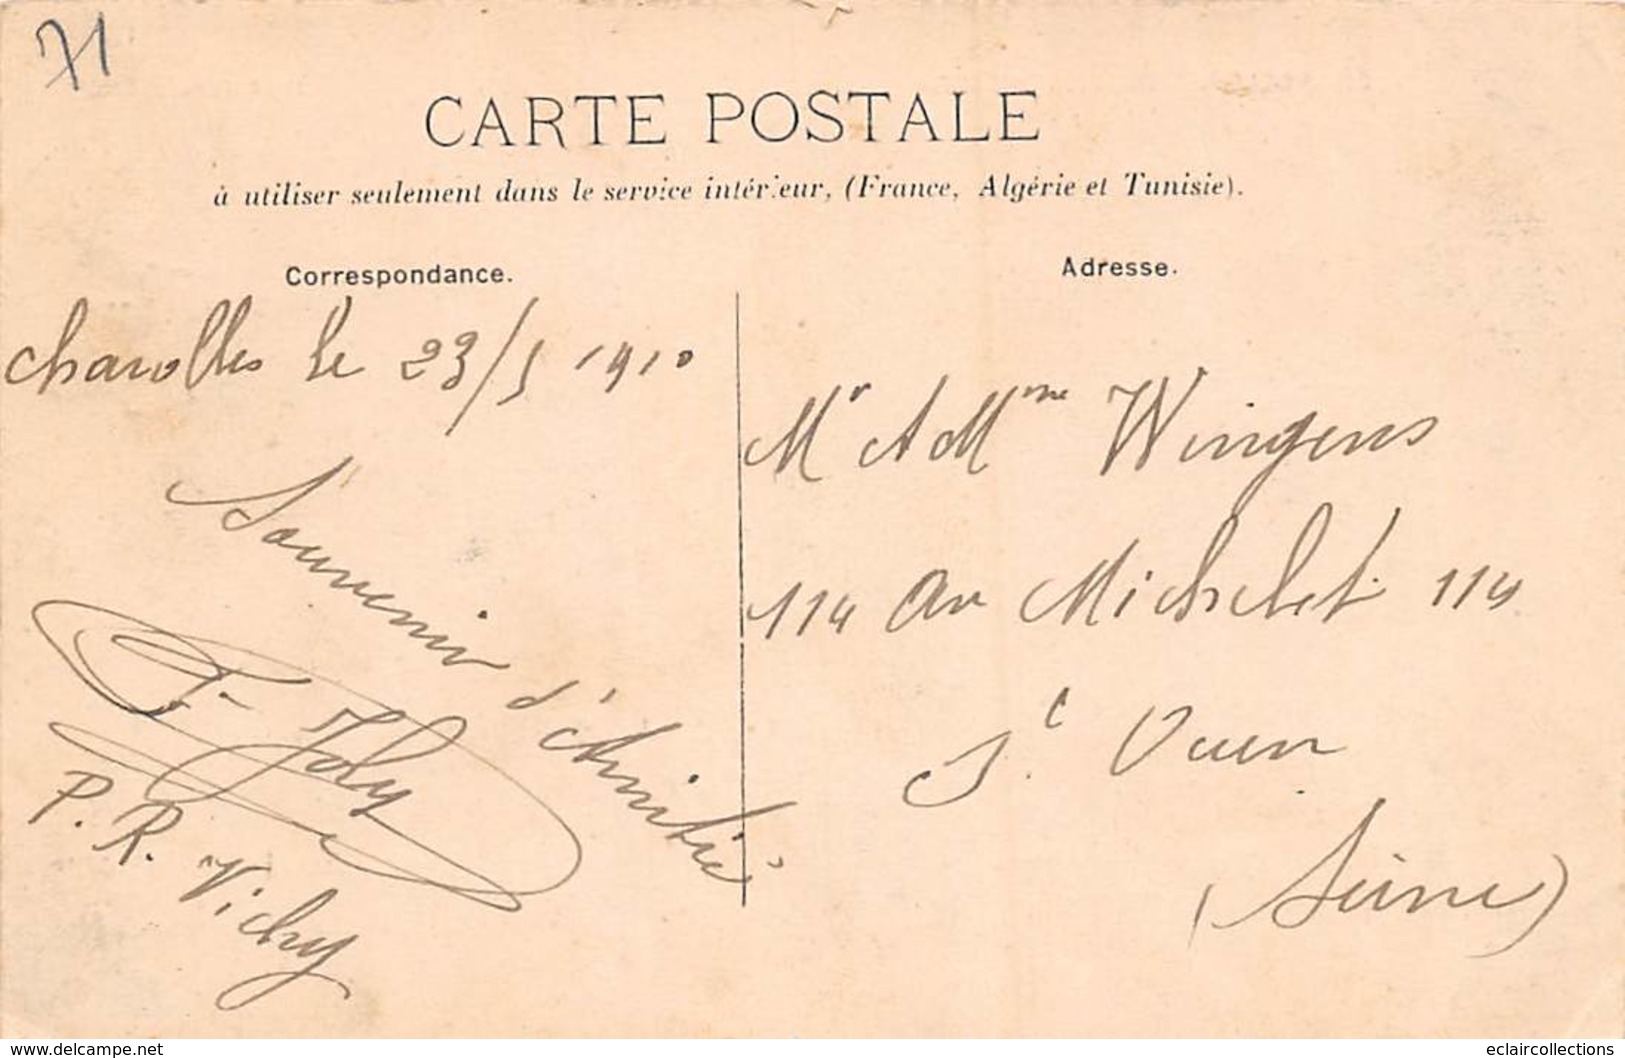 71
CARTE POSTALE
à utiliser seulement dans le service intérieur, (France, Algérie et Tunisie).
Correspondance.
Charolles le 23/5 1910
Souvenir d'Amitié
F. Joly
P. R. Vichy
Adresse.
Mr & Mme Wingens
114 Av Michelet 114
St. Ouen
(Seine)
www.delcampe.net
eclaircollections